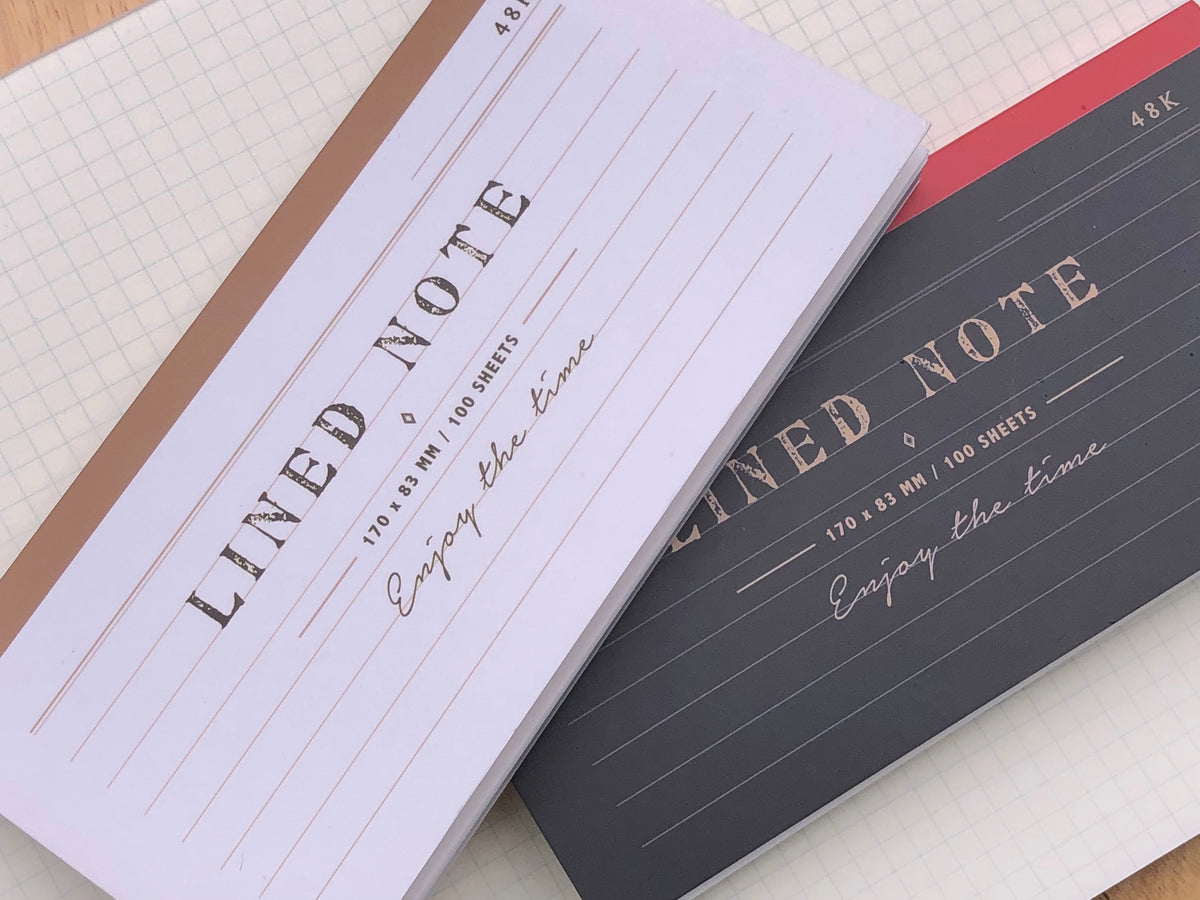 48K
LINED NOTE
170 x 83 MM / 100 SHEETS
Enjoy the time
48K
LINED NOTE
170 x 83 MM / 100 SHEETS
Enjoy the time